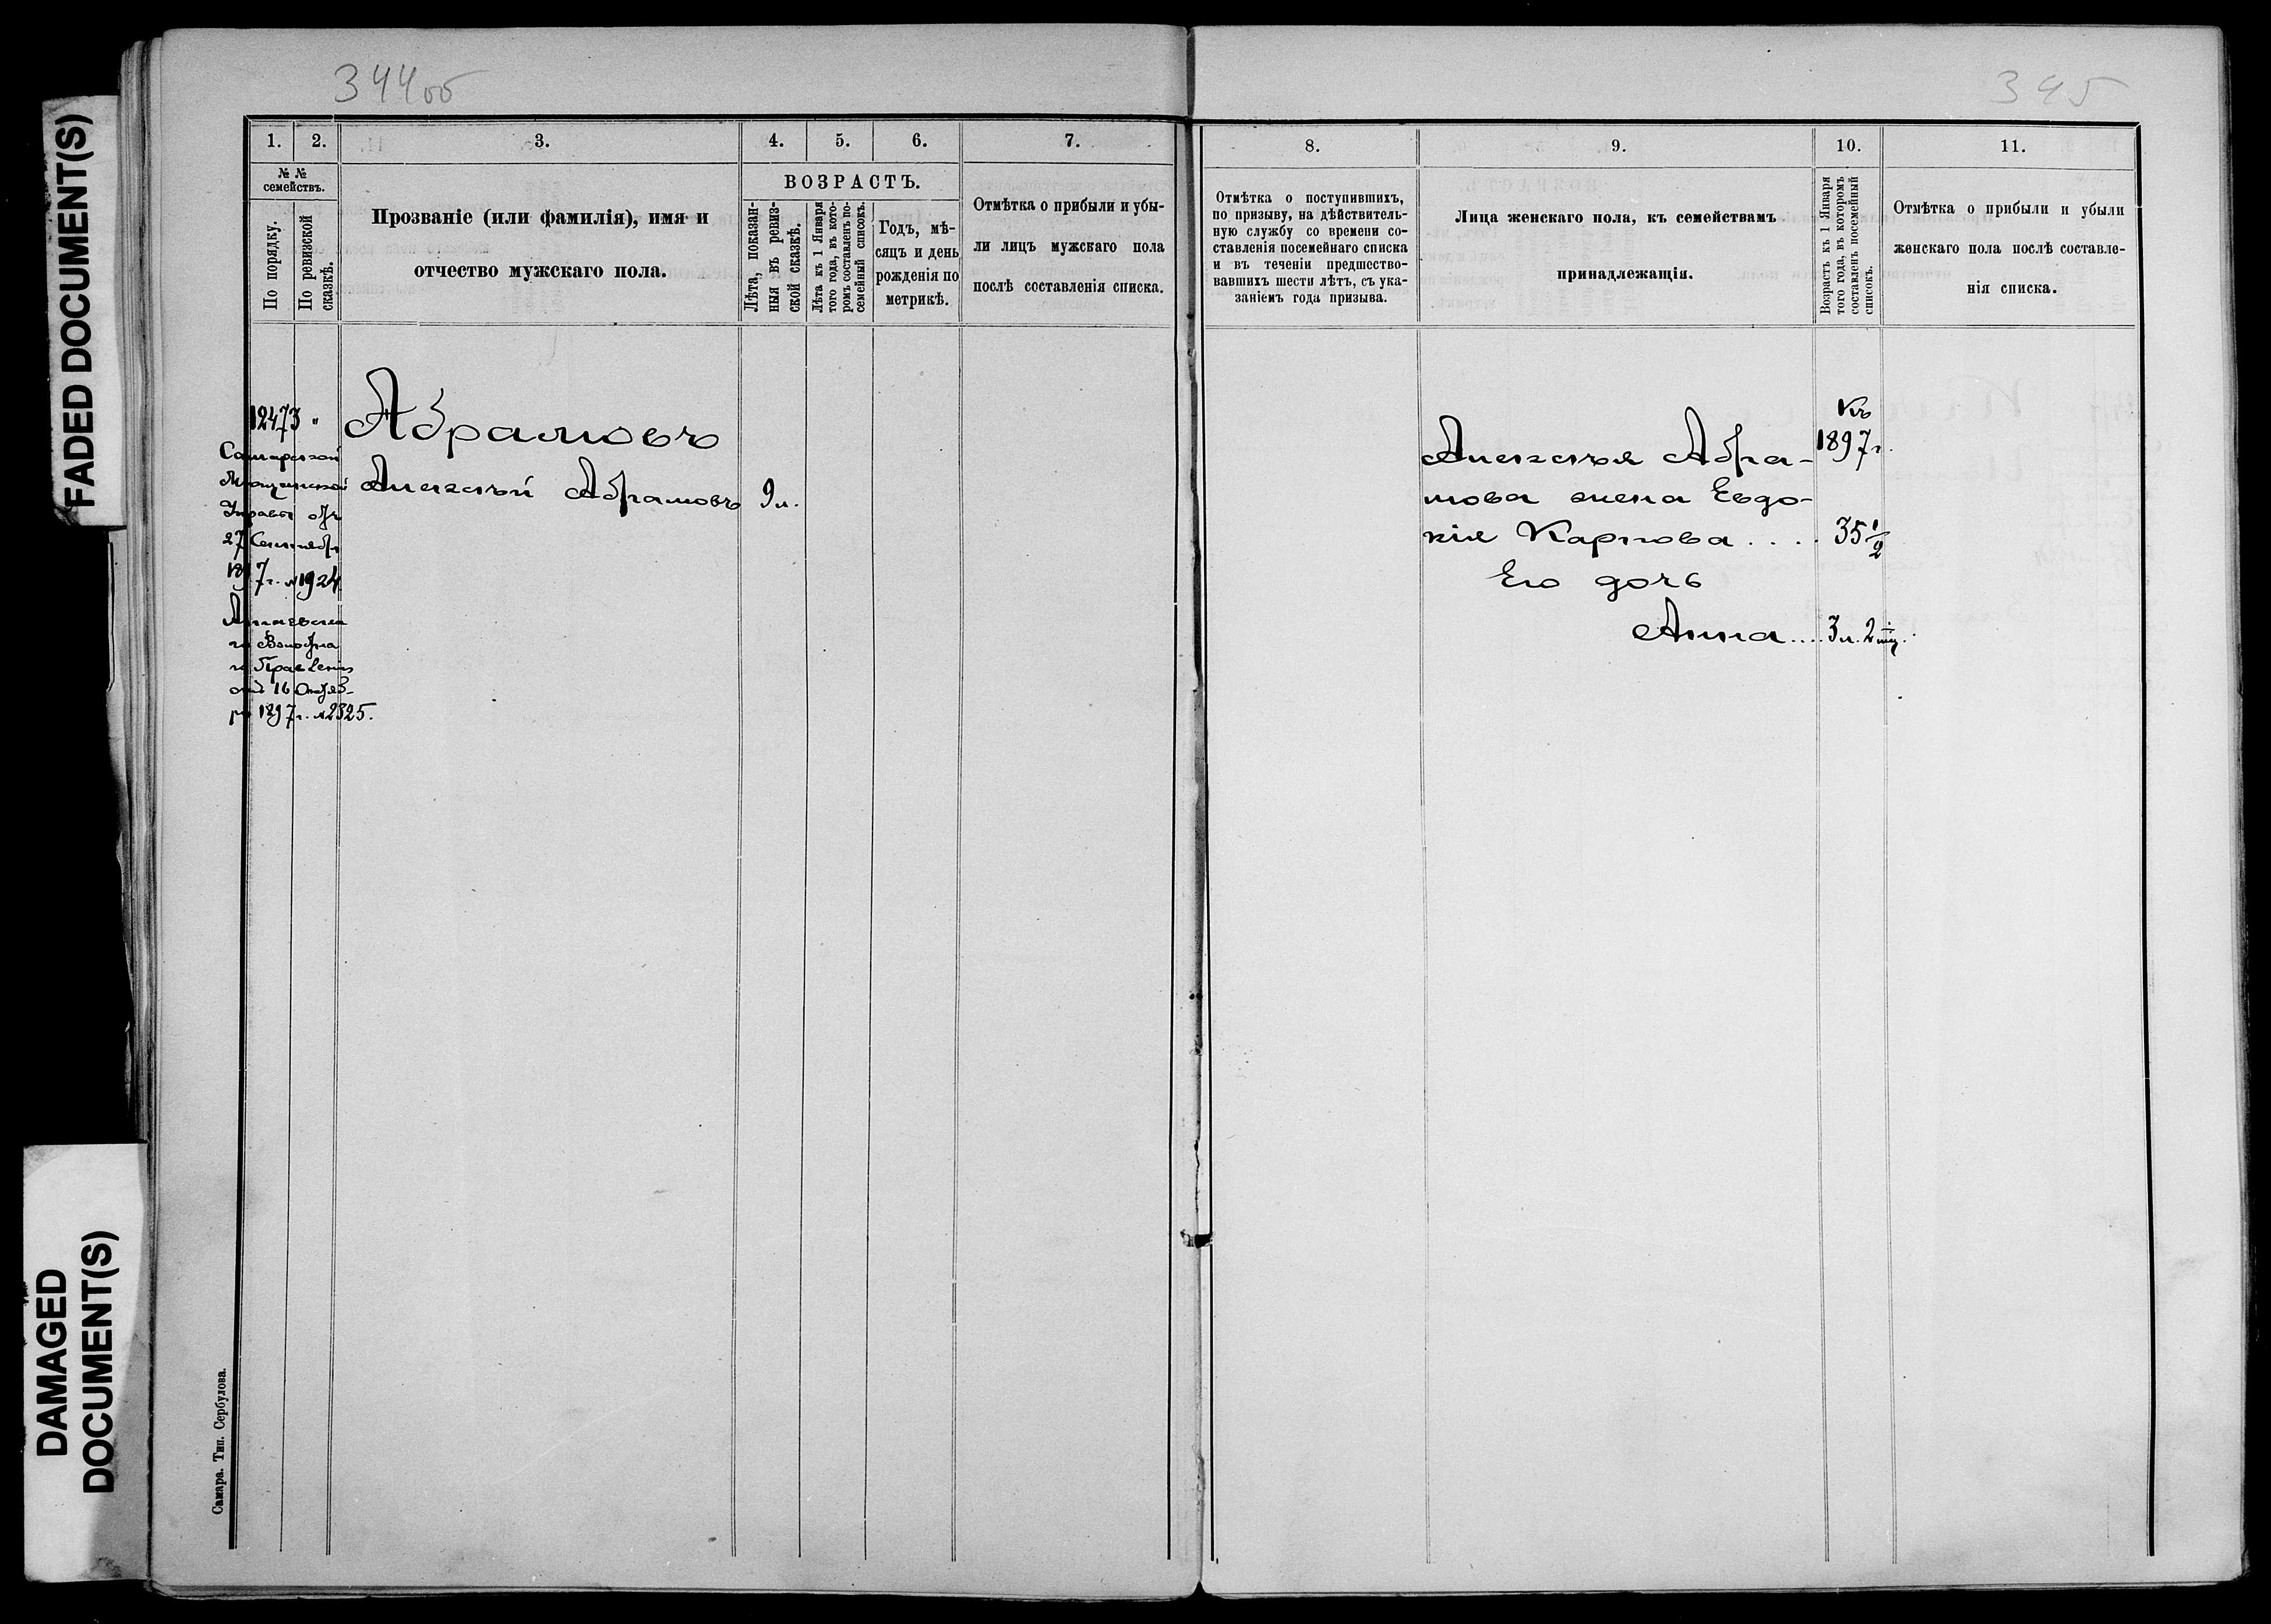 FADED DOCUMENT(S)
DAMAGED
DOCUMENT(S)
344об
1. 2. 3. 4. 5. 6. 7.
№ №
семействъ.
По порядку.
По ревизской
сказкѣ.
Прозваніе (или фамилія), имя и
отчество мужскаго пола.
ВОЗРАСТЪ.
Лѣта, показан-
ныя въ ревиз-
ской сказкѣ.
Лѣта къ 1 Января
того года, въ кото-
ромъ составленъ по-
семейный списокъ.
Годъ, мѣ-
сяцъ и день
рожденія по
метрикѣ.
Отмѣтка о прибыли и убы-
ли лицъ мужскаго пола
послѣ составленія списка.
12473 "
Самарской
Мѣщанской
Управы отъ
27 Сентября
1897 г. №1924
го Волостна
го Правленія
отъ 16 Октяб-
ря 1897 г. №2325.
Абрамовъ
Алексѣй Абрамовъ 9 л.
Самара. Тип. Сербулова.
345
8. 9. 10. 11.
Отмѣтка о поступившихъ,
по призыву, на дѣйствитель-
ную службу со времени со-
ставленія посемейнаго списка
и въ теченіи предшество-
вавшихъ шести лѣтъ, съ ука-
заніемъ года призыва.
Лица женскаго пола, къ семействамъ
принадлежащія.
Возрастъ къ 1 Января
того года, въ которомъ
составленъ посемейный
списокъ.
Отмѣтка о прибыли и убыли
женскаго пола послѣ составле-
нія списка.
Къ
1897 г.
Алексѣя Абра-
мова жена Евдо-
кія Карпова . . . . 35 1/2
Его дочь
Анна .... 3 л. 2 мц.